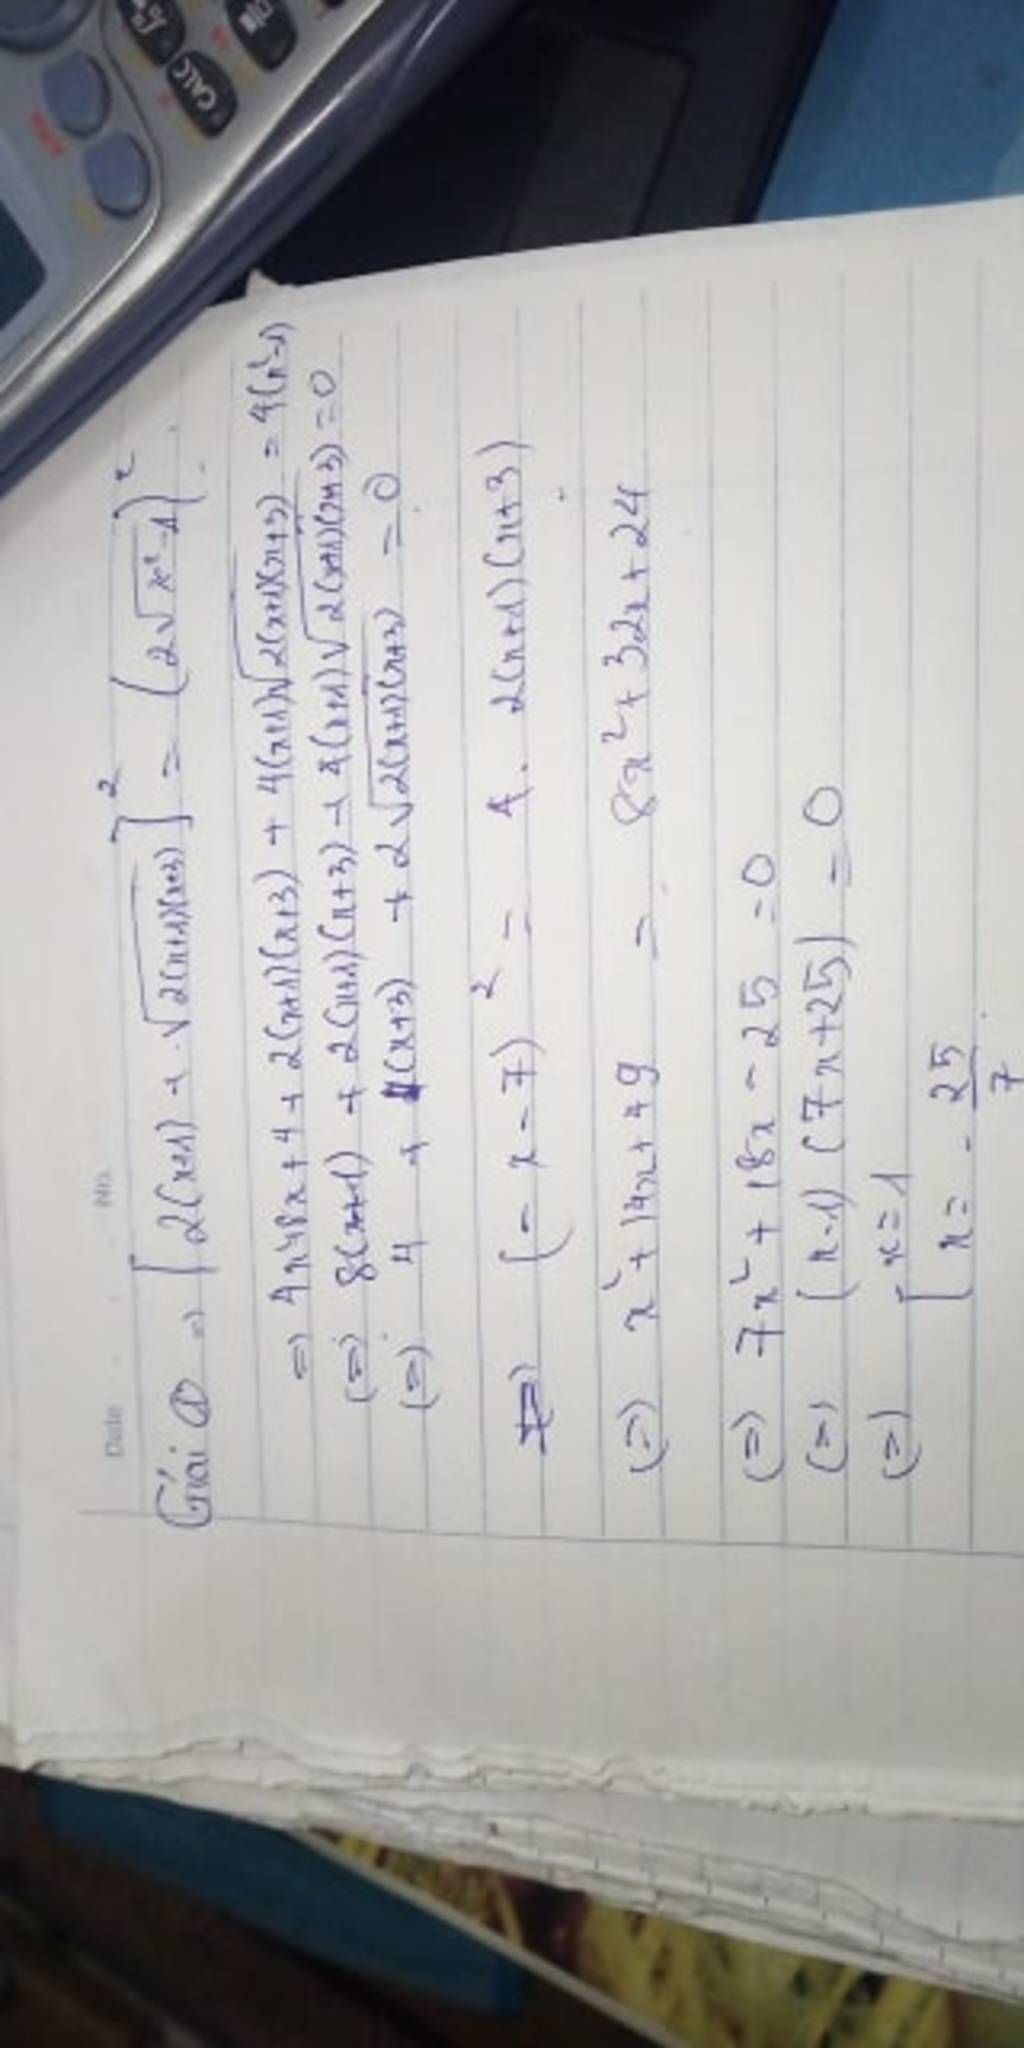 CALC
Date No.
Giải ① => [2(x+1) + √2(x+1)(x+3)]² = (2√x²-1)²
=> 4x²+8x+4+2(x+1)(x+3) + 4(x+1)√2(x+1)(x+3) = 4(x²-1)
(=) 8(x+1) + 2(x+1)(x+3) + 4(x+1)√2(x+1)(x+3) = 0
(=) 4 + (x+3) + 2√2(x+1)(x+3) = 0
=> (-x-7)² = 4. 2(x+1)(x+3)
(=) x²+14x+49 = 8x²+32x+24
(=) 7x²+18x-25=0
(=) (x-1)(7x+25)=0
(=) [x=1
[x=-25/7